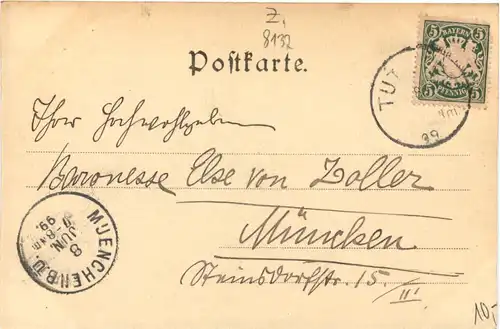 Z,
8132
Postkarte.
BAYERN
5 5
5 PFENNIG 5
TUT
99
Ihrer Hochwohlgeboren
Baronesse Else von Zoller
München
Steinsdorfstr. 15./III
MUENCHEN B.P.
8
JUN.
99.
10,-